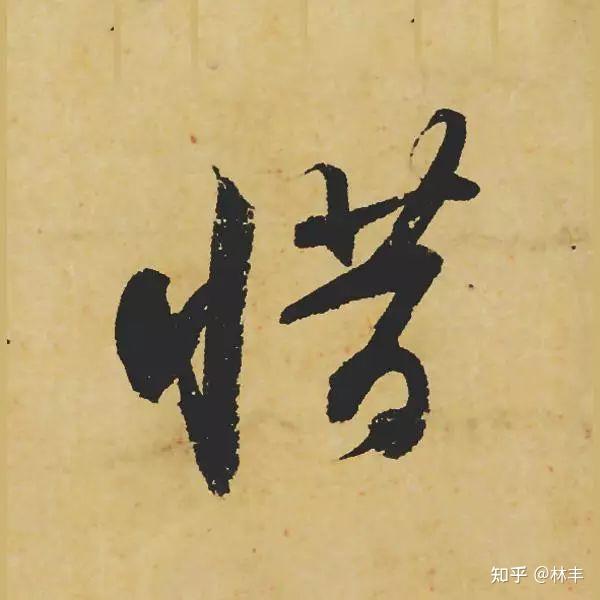 惜
知乎 @林丰